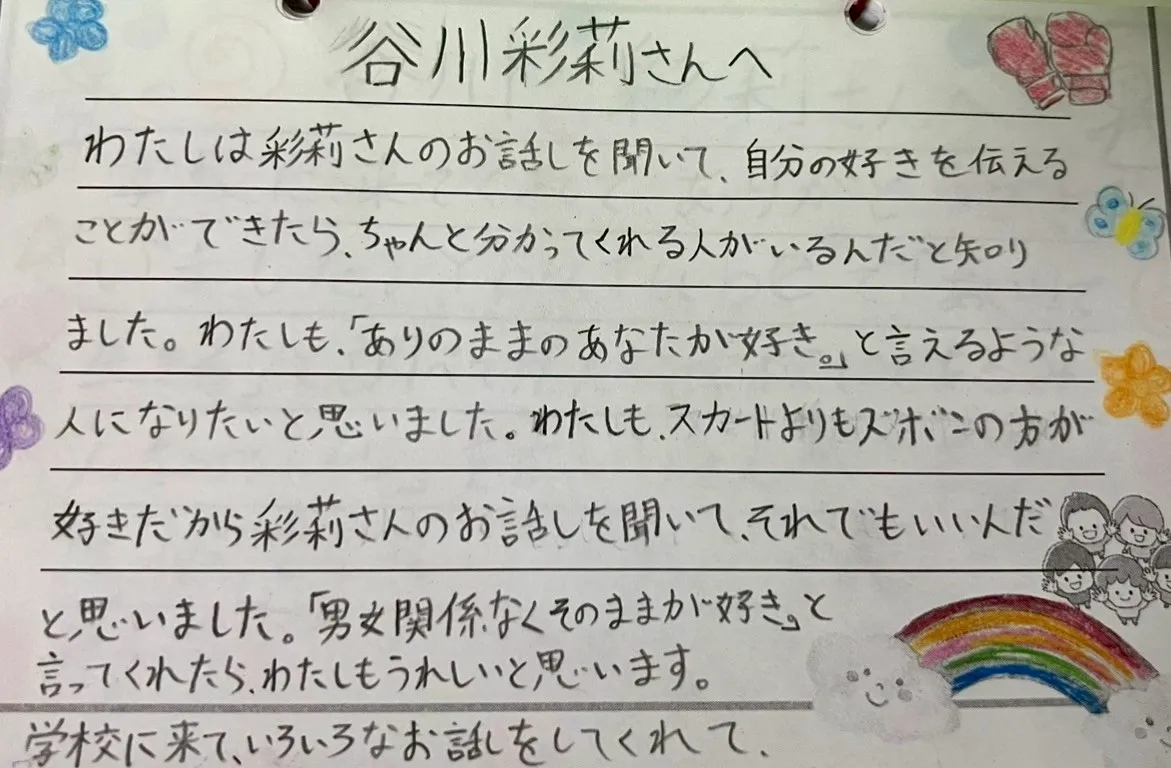 谷川彩莉さんへ
わたしは彩莉さんのお話しを聞いて、自分の好きを伝える
ことができたら、ちゃんと分かってくれる人がいるんだと知り
ました。わたしも、「ありのままのあなたが好き。」と言えるような
人になりたいと思いました。わたしも、スカートよりもズボンの方が
好きだから彩莉さんのお話しを聞いて、それでもいいんだ
と思いました。「男女関係なくそのままが好き」と
言ってくれたら、わたしもうれしいと思います。
学校に来て、いろいろなお話しをしてくれて、